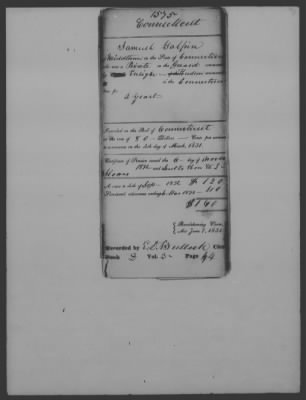 1575
Connecticut
Samuel Galpin
Middletown in the State of Connecticut
who was a Private in the Guard
in the Connecticut
2 years
Inscribed on the Roll of Connecticut
at the rate of 80 Dollars Cents per annum
to commence on the 4th day of March, 1831.
Certificate of Pension issued the 6 day of
1832 and
Arrears to 4th of Sept. 1832 $120
Semi-anl. allowance ending 4 Mar 1833 40
$160
Revolutionary Claim,
Act June 7, 1832.
Recorded by E. D. Bullock Clerk
Book D Vol. 3 Page 64